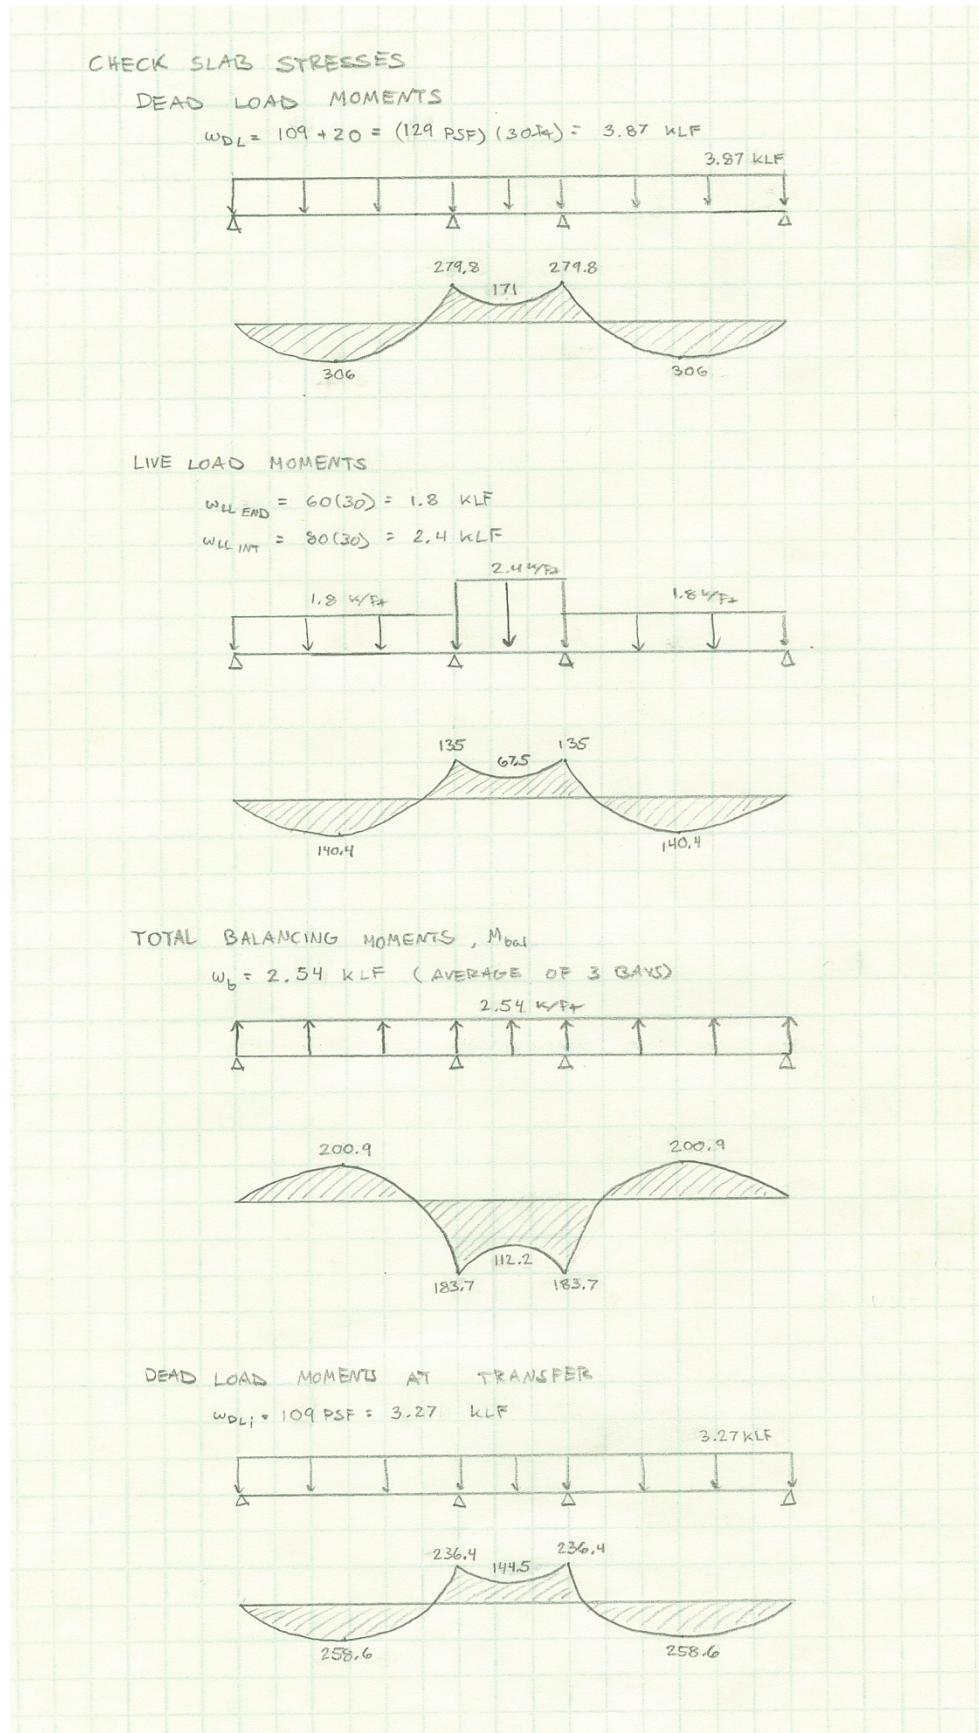 CHECK SLAB STRESSES
DEAD LOAD MOMENTS
WDL = 109 + 20 = (129 PSF) (30Ft) = 3.87 KLF
3.87 KLF
279.8 279.8
171
306 306
LIVE LOAD MOMENTS
WLL END = 60(30) = 1.8 KLF
WLL INT = 80(30) = 2.4 KLF
2.4 K/Ft
1.8 K/Ft 1.8 K/Ft
135 135
67.5
140.4 140.4
TOTAL BALANCING MOMENTS, Mbal
Wb = 2.54 KLF (AVERAGE OF 3 BAYS)
2.54 K/Ft
200.9 200.9
112.2
183.7 183.7
DEAD LOAD MOMENTS AT TRANSFER
WDLi = 109 PSF = 3.27 KLF
3.27 KLF
236.4 236.4
144.5
258.6 258.6